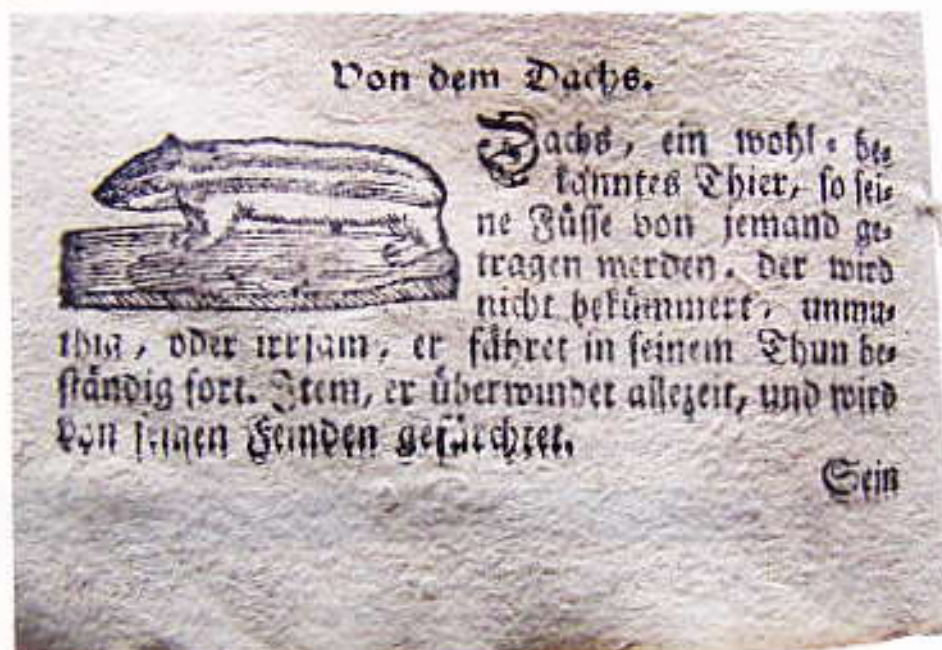 Von dem Dachs.
Dachs, ein wohl-be-
kanntes Thier, so sei-
ne Füsse von jemand ge-
tragen werden, der wird
nicht bekümmert, unmu-
thig, oder irrsam, er fähret in seinem Thun be-
ständig fort. Item, er überwindet allezeit, und wird
von seinen Feinden gefürchtet.
Sein